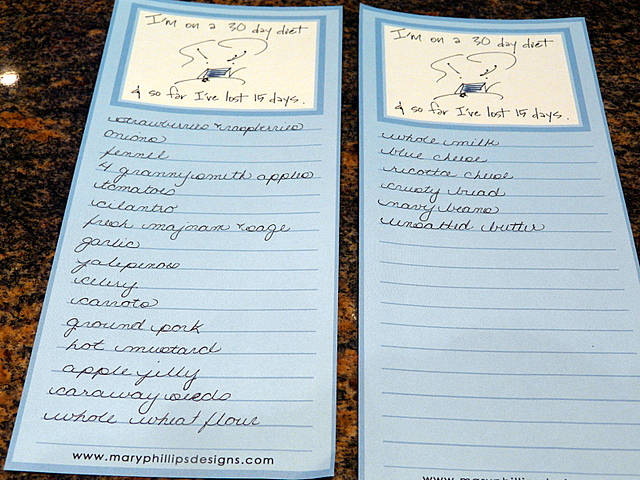 I'm on a 30 day diet
& so far I've lost 15 days.
strawberries & raspberries
onions
fennel
4 granny smith apples
tomatoes
cilantro
fresh majoram & sage
garlic
jalepenos
celery
carrots
ground pork
hot mustard
apple jelly
caraway seeds
whole wheat flour
www.maryphillipsdesigns.com
I'm on a 30 day diet
& so far I've lost 15 days.
whole milk
blue cheese
ricotta cheese
crusty bread
navy beans
unsalted butter